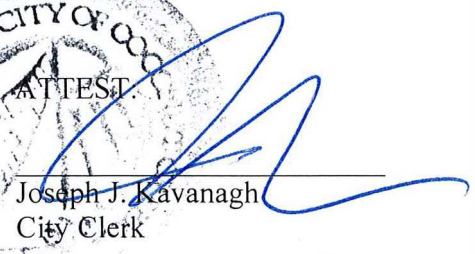 CITY OF OCO
ATTEST:
Joseph J. Kavanagh
City Clerk